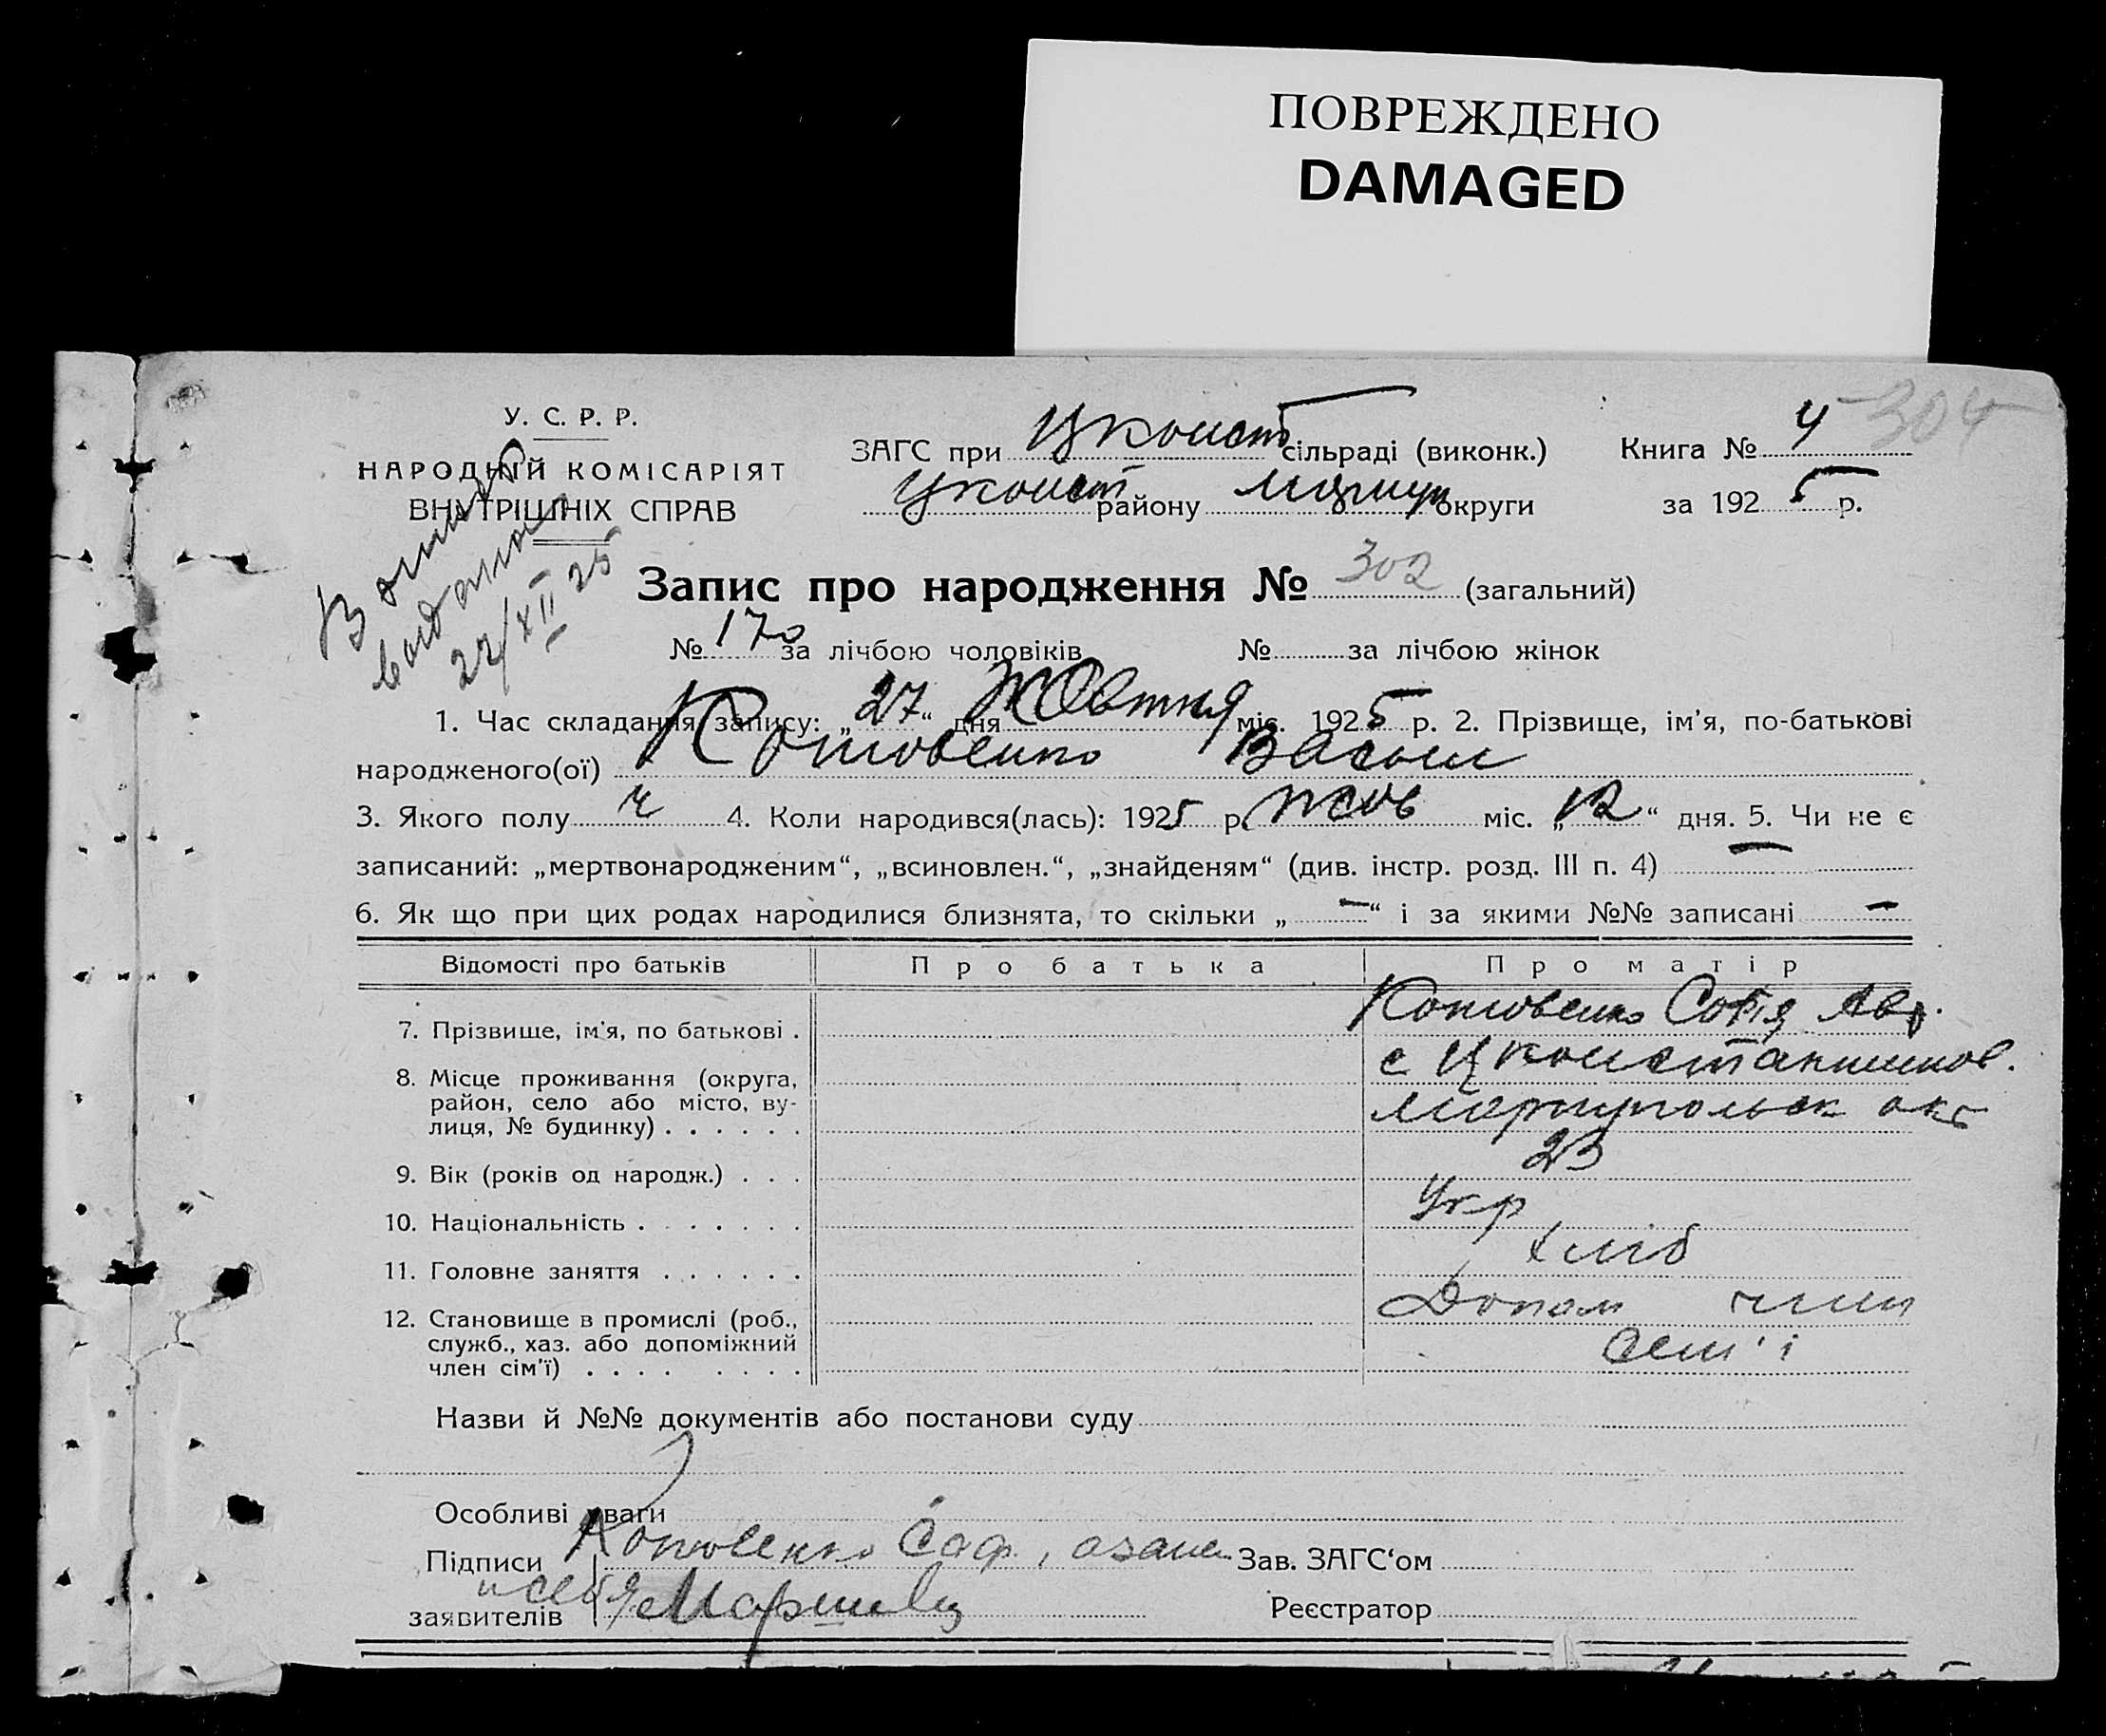 ПОВРЕЖДЕНО
DAMAGED
У. С. Р. Р.
НАРОДНІЙ КОМІСАРІЯТ
ВНУТРІШНІХ СПРАВ
27/XII 25
ЗАГС при Цконст сільраді (виконк.) Книга № 4 304
Цконст району округи за 1925 р.
Запис про народження № 302 (загальний)
№ 170 за лічбою чоловіків № за лічбою жінок
1. Час складання запису: „27“ дня Жовтня міс. 1925 р. 2. Прізвище, ім’я, по-батькові
народженого(ої) Котовенко Василь
3. Якого полу ч 4. Коли народився(лась): 1925 р. жов міс. „12“ дня. 5. Чи не є
записаний: „мертвонародженим“, „всиновлен.“, „знайденям“ (див. інстр. розд. III п. 4) —
6. Як що при цих родах народилися близнята, то скільки „—“ і за якими №№ записані —
Відомості про батьків Про батька Про матір
7. Прізвище, ім’я, по батькові . Котовенко Софія Авр.
8. Місце проживання (округа, с Цконстантинов.
район, село або місто, ву-
лиця, № будинку) . . . . . . Маріупольск окг
9. Вік (років од народж.) . . . 23
10. Національність . . . . . . . Укр
11. Головне заняття . . . . . . хліб
12. Становище в промислі (роб., Допом член
служб., хаз. або допоміжний сем'і
член сім’ї) . . . . . . . .
Назви й №№ документів або постанови суду
Особливі уваги
Підписи Котовенко Соф, Зав. ЗАГС‘ом
заявителів Реєстратор